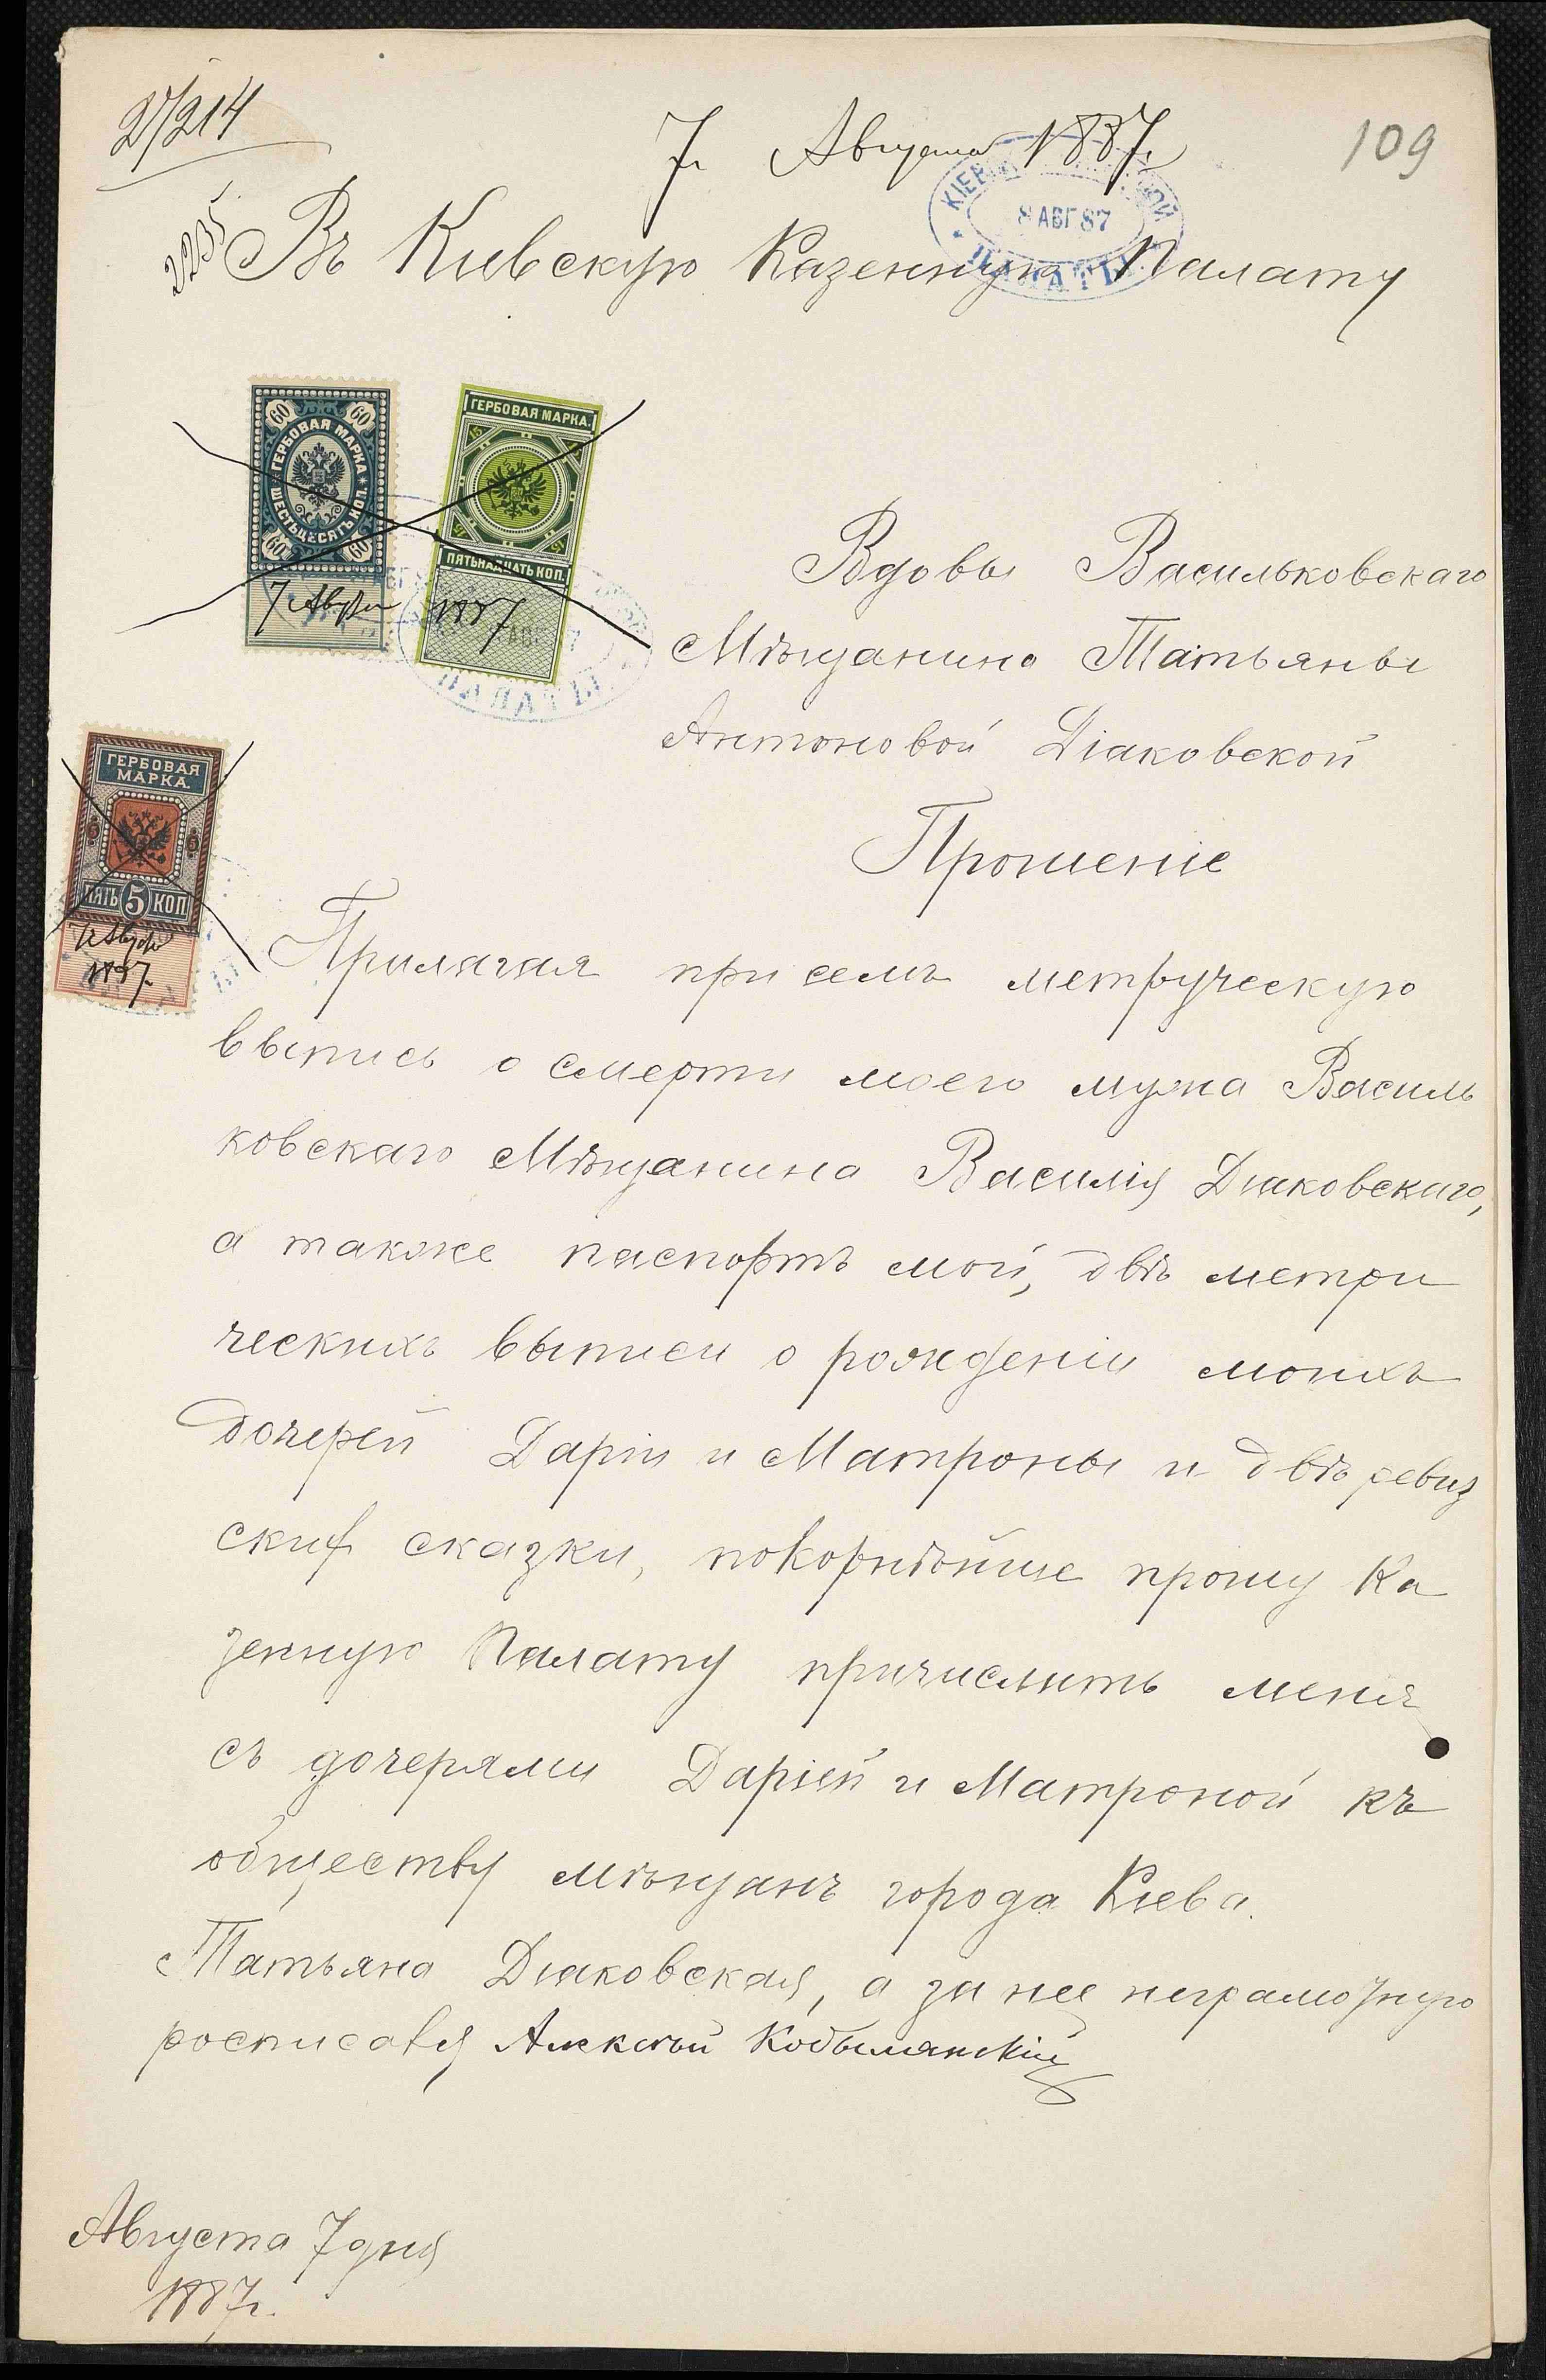 2/214
7 Августа 1887 г.
109
КІЕВ
8 АВГ 87
ПАЛАТЫ
2235
Въ Киевскую Казенную Палату
60 60
ГЕРБОВАЯ МАРКА
ШЕСТЬДЕСЯТЪ КОП.
60 60
7 Авгу
ГЕРБОВАЯ МАРКА.
15
ПЯТЬНАДЦАТЬ КОП.
1887
ПАЛАТЫ
Вдовы Васильковскаго
Мѣщанина Татьяны
Антоновой Діаковской
Прошеніе
ГЕРБОВАЯ
МАРКА.
5 5
ПЯТЬ 5 КОП
1887.
Прилагая при семъ метрическую
выпись о смерти моего мужа Василь
ковскаго Мѣщанина Василія Діаковскаго,
а также паспортъ мой, двѣ метри
ческихъ выписи о рожденіи моихъ
дочерей Даріи и Матроны и двѣ ревиз
скія сказки, покорнѣйше прошу Ка
зенную Палату причислить меня
съ дочерями Даріей и Матроной къ
обществу мѣщанъ города Кіева.
Татьяна Діаковская, а за нее неграмотную
росписався Алексѣй Кобылянскій
Августа 7 дня
1887 г.